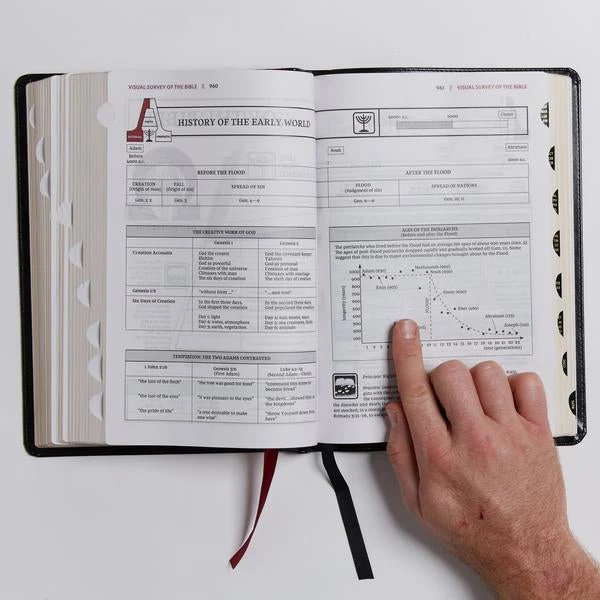 VISUAL SURVEY OF THE BIBLE || 960
HISTORY OF THE EARLY WORLD
Adam
Before
4000 B.C.
BEFORE THE FLOOD
CREATION FALL SPREAD OF SIN
(Origin of man) (Origin of sin)
Gen. 1; 2 Gen. 3 Gen. 4—9
THE CREATIVE WORK OF GOD
Genesis 1 Genesis 2
Creation Accounts God the creator God the covenant-keeper
Elohim Yahweh
God as powerful God as personal
Creation of the universe Creation of man
Climaxes with man Climaxes with marriage
The six days of creation The sixth day of creation
Genesis 1:2 "without form ..." "... and void"
Six Days of Creation In the first three days, In the second three days,
God shaped the creation God populated the creation
Day 1: light Day 4: sun, moon, stars
Day 2: water, atmosphere Day 5: fish, birds
Day 3: earth, vegetation Day 6: animals
TEMPTATION: THE TWO ADAMS CONTRASTED
1 John 2:16 Genesis 3:6 Luke 4:1–13
(First Adam) (Second Adam—Christ)
"the lust of the flesh" "the tree was good for food" "command this stone to
become bread"
"the lust of the eyes" "it was pleasant to the eyes" "the devil... showed Him all
the kingdoms"
"the pride of life" "a tree desirable to make "throw Yourself down from
one wise" here"
961 || VISUAL SURVEY OF THE BIBLE
Christ
Noah Abraham
AFTER THE FLOOD
FLOOD SPREAD OF NATIONS
(Judgment of sin)
Gen. 6—9 Gen. 10; 11
AGES OF THE PATRIARCHS
(Before and after the Flood)
The patriarchs who lived before the Flood had an average life span of about 900 years (Gen. 5).
The ages of post-Flood patriarchs dropped rapidly and gradually leveled off (Gen. 11). Some
suggest that this is due to major environmental changes brought about by the Flood.
Methuselah (969)
Adam (930)
Noah (950)
Shem (600)
Eber (464)
Abraham (175)
Joseph (110)
FLOOD
longevity (years)
time (generations)
Principle:
the disorder and death
Romans 5:12